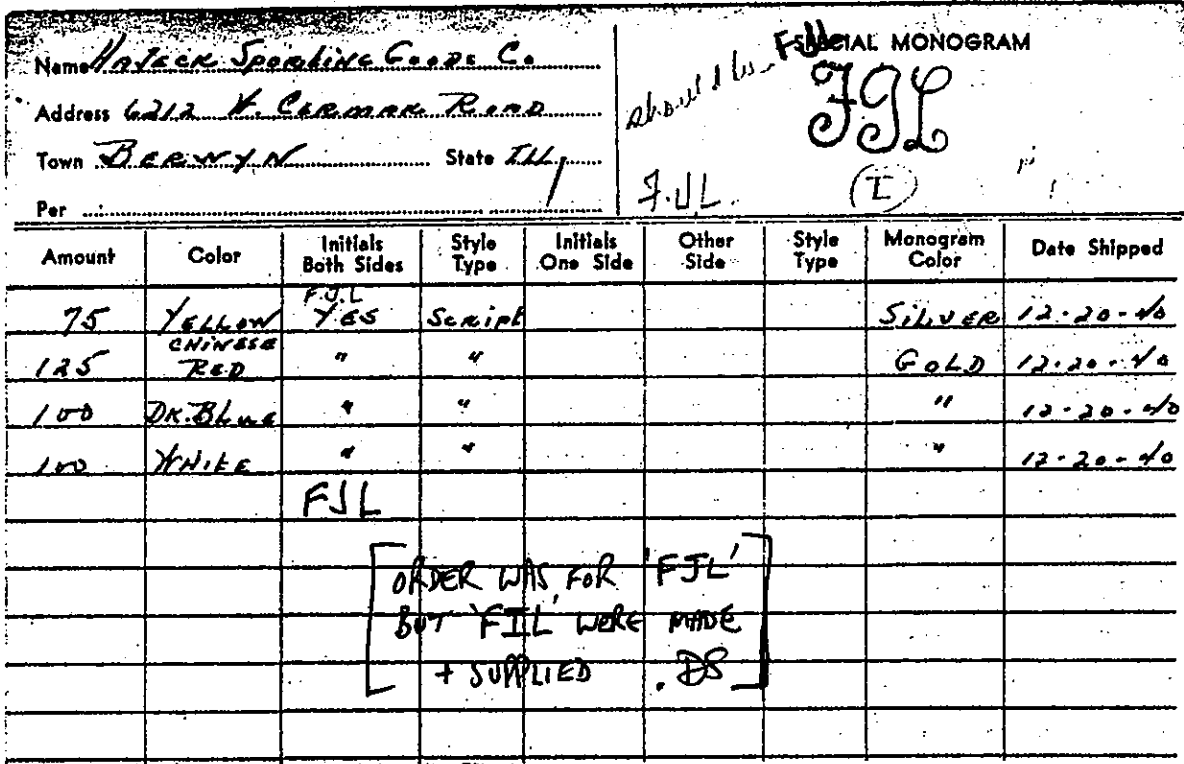 Name Hateck Sporting Goods Co.
Address 6212 W. Cermak Road
Town BERWYN State ILL,
Per
SPECIAL MONOGRAM
should be FJL
FJL
F.J.L.
(I)
Amount Color Initials Both Sides Style Type Initials One Side Other Side Style Type Monogram Color Date Shipped
F.J.L
75 YELLOW YES Script SILVER 12-20-40
CHINESE
125 RED " " GOLD 12-20-40
100 DK. BLUE " " " 12-20-40
100 WHITE " " " 12-20-40
FJL
ORDER WAS FOR 'FJL'
BUT 'FIL' WERE MADE
+ SUPPLIED . DS